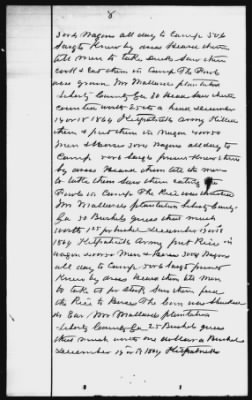 8
300 Wagons all day to Camp 50 &
Sargts Knew by dress Heard them
tell Men to take Ducks Saw them
cook & Eat them in Camp The Fowls
were grown Mr Mallards plantation
Liberty County Ga 30 Head Saw them
counted worth 25cts a head December
14 or 15 1864 Kilpatricks Army Killed
them & put them in wagon
Men & Horses 300 Wagons all day to
Camp 50 & Sargts present Knew them
by dress Heard them tell the men
to take them Saw them eating the
Fowls in Camp The Rice was
Mr Mallards plantation Liberty County
Ga 30 Bushels guess that much
worth 1 25 per bushel December 13 or 15
1864 Kilpatricks Army put Rice in
wagon Men & Horses 300 Wagons
all day to Camp 50 & Sargts present
Knew by dress Heard them tell men
to take it for stock Saw them feed
the Rice to Horses The Corn was Shucked
in Ear Mr Mallards plantation
Liberty County Ga 25 Bushels guess
that much worth one dollar a Bushel
December 13 or 15 1864 Kilpatricks